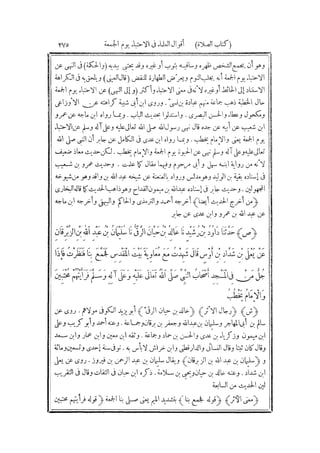 (كتاب الصلاة) أقوال العلماء فى الاحتباء يوم الجمعة ٢٧٥
وهو أن يجمع الشخص ظهره وساقيه بثوب أو غيره وقد يحتبى بيديه (والحكمة) فى النهى عن
الاحتباء يوم الجمعة أنه يجلب النوم ويعرّض الطهارة للنقض (قال العينى) ويلتحق به فى الكراهة
الاستناد إلى الحائط أو غيره لأنه فى معنى الاحتباء وأكثر (وإلى النهى) عن الاحتباء يوم الجمعة
حال الخطبة ذهب جماعة منهم عبادة بن نسىّ . وروى ابن أبى شيبة كراهته عن الأوزاعى
ومكحول وعطاء والحسن البصرى . واستدلوا بحديث الباب . وبما رواه ابن ماجه عن عمرو
ابن شعيب عن أبيه عن جده قال نهى رسول الله صلى الله تعالى عليه وعلى آله وسلم عن الاحتباء
يوم الجمعة يعنى والإمام يخطب . وبما رواه ابن عدى فى الكامل عن جابر أن النبى صلى الله
تعالى عليه وعلى آله وسلم نهى عن الحبوة يوم الجمعة والإمام يخطب . لكن حديث معاذ ضعيف
لأنه من رواية سهل وأبى مرحوم وفيهما مقال كما علمت . وحديث عمرو بن شعيب
فى إسناده بقية بن الوليد وهو مدلس ورواه بالعنعنة عن شيخه عبد الله بن واقد وهو من شيوخه
المجهولين . وحديث جابر فى إسناده عبد الله بن ميمون القداح وهو ذاهب الحديث كما قاله البخارى
﴿من أخرج الحديث أيضا﴾ أخرجه أحمد والترمذى والحاكم والبيهقى وأخرجه ابن ماجه
عن عبد الله بن عمرو وابن عدى عن جابر
﴿ص﴾ حَدَّثَنَا دَاوُدُ بْنُ رُشَيْدٍ نَا خَالِدُ بْنُ حَيَّانَ الرَّقِّىُّ نَا سُلَيْمَانُ بْنُ عَبْدِ اللهِ بْنِ الزِّبْرِقَانِ
عَنْ يَعْلَى بْنِ شَدَّادِ بْنِ أَوْسٍ قَالَ شَهِدْتُ مَعَ مُعَاوِيَةَ بَيْتَ الْمَقْدِسِ فَجَمَّعَ بِنَا فَنَظَرْتُ فَإِذَا
جُلُّ مَنْ فِى الْمَسْجِدِ أَصْحَابُ النَّبِىِّ صَلَّى اللهُ تَعَالَى عَلَيْهِ وَعَلَى آلِهِ وَسَلَّمَ فَرَأَيْتُهُمْ مُحْتَبِينَ
وَالْإِمَامُ يَخْطُبُ
﴿ش﴾ ﴿رجال الأثر﴾ ﴿خالد بن حيان الرقى﴾ أبو يزيد الكوفى مولاهم . روى عن
سالم بن أبى المهاجر وسليمان بن عبد الله وجعفر بن برقان وجماعة . وعنه أحمد وأبو كريب وعلى
ابن ميمون وزكرياء بن عدى والحسن بن حماد وجماعة . وثقه ابن معين وابن عمار وابن سعد
وقال كان ثبتا وقال النسائى والدارقطنى وابن خراش لا بأس به . توفى سنة إحدى وتسعين ومائة
و ﴿سليمان بن عبد الله بن الزبرقان﴾ ويقال سليمان بن عبد الرحمن بن فيروز . روى عن يعلى
ابن شداد . وعنه خالد بن حيان ويحيى بن سلامة . ذكره ابن حبان فى الثقات وقال فى التقريب
لين الحديث من السابعة
﴿معنى الأثر﴾ ﴿قوله فجمع بنا﴾ بتشديد الميم يعنى صلى بنا الجمعة ﴿قوله فرأيتهم محتبين